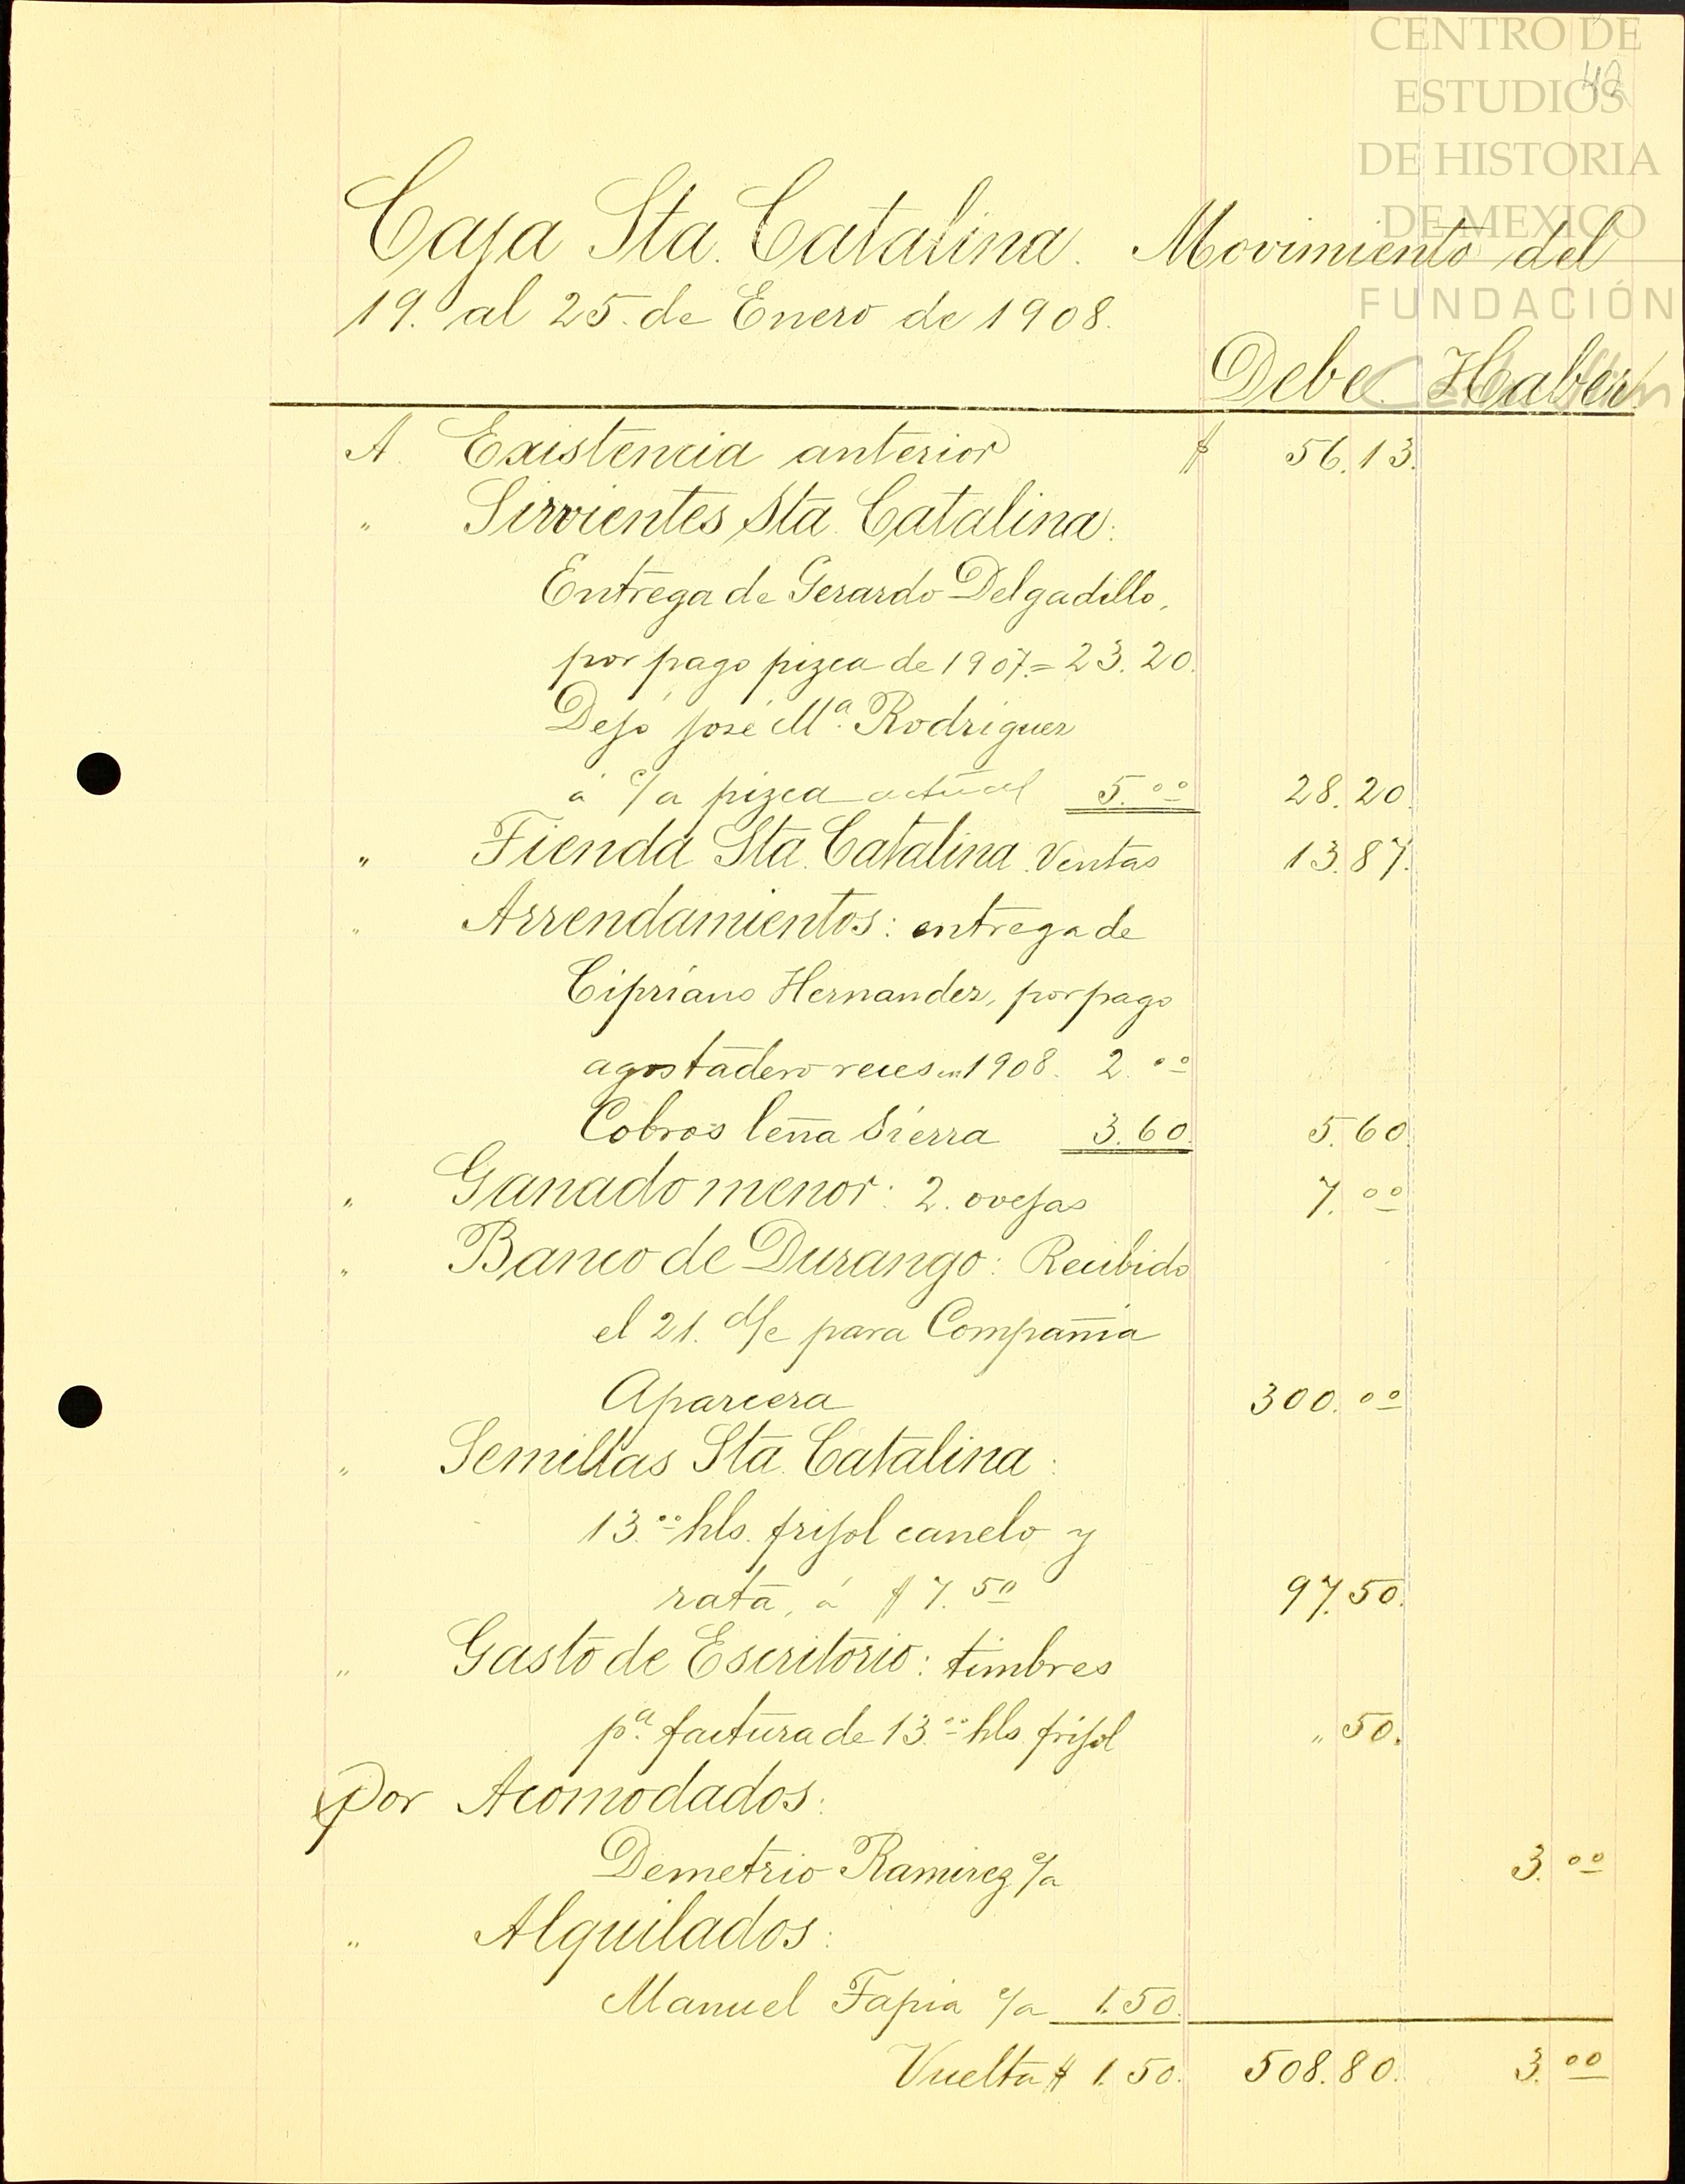 CENTRO DE
ESTUDIOS
DE HISTORIA
DE MEXICO
FUNDACIÓN
42
Caja Sta. Catalina. Movimiento del
19. al 25. de Enero de 1908.
Debe. Haber.
A. Existencia anterior $ 56.13.
" Sirvientes Sta. Catalina:
Entrega de Gerardo Delgadillo,
por pago pizca de 1907.= 23.20.
Dejó José Ma. Rodriguez
á c/a pizca actual 5.00 28.20.
" Tienda Sta. Catalina. Ventas 13.87.
" Arrendamientos: entrega de
Cipriano Hernandez, por pago
agostadero reces en 1908. 2.00
Cobros leña Sierra 3.60. 5.60.
" Ganado menor: 2. ovejas 7.00
" Banco de Durango: Recibido
el 21. d/c para Compañia
Aparcera 300.00
" Semillas Sta. Catalina:
13.00 hls. frijol canelo y
rata, á $ 7.50 97.50.
" Gasto de Escritorio: timbres
pa. factura de 13.00 hls. frijol " 50.
Por Acomodados:
Demetrio Ramirez c/a 3.00
" Alquilados:
Manuel Tapia c/a 1.50.
Vuelta $ 1.50. 508.80. 3.00